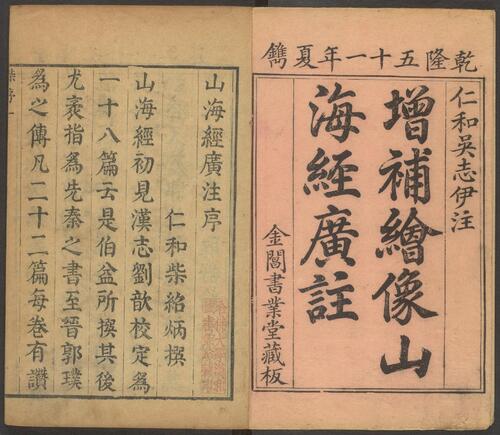 乾隆五十一年夏鐫
仁和吳志伊注
增補繪像山
海經廣註
金閶書業堂藏板
山海經廣注序
仁和柴紹炳撰
山海經初見漢志劉歆校定爲
一十八篇云是伯益所撰其後
尤袤指爲先秦之書至晉郭璞
爲之傳凡二十二篇每卷有讚
柴序一